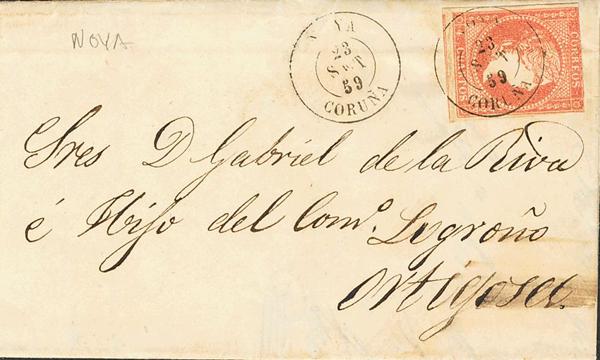 NOYA
NOYA
23
SET
59
CORUÑA
NOYA
23
SET
59
CORUÑA
CORREOS
Sres D Gabriel de la Riva
é Hijo del Comº. Logroño
Ortigosa